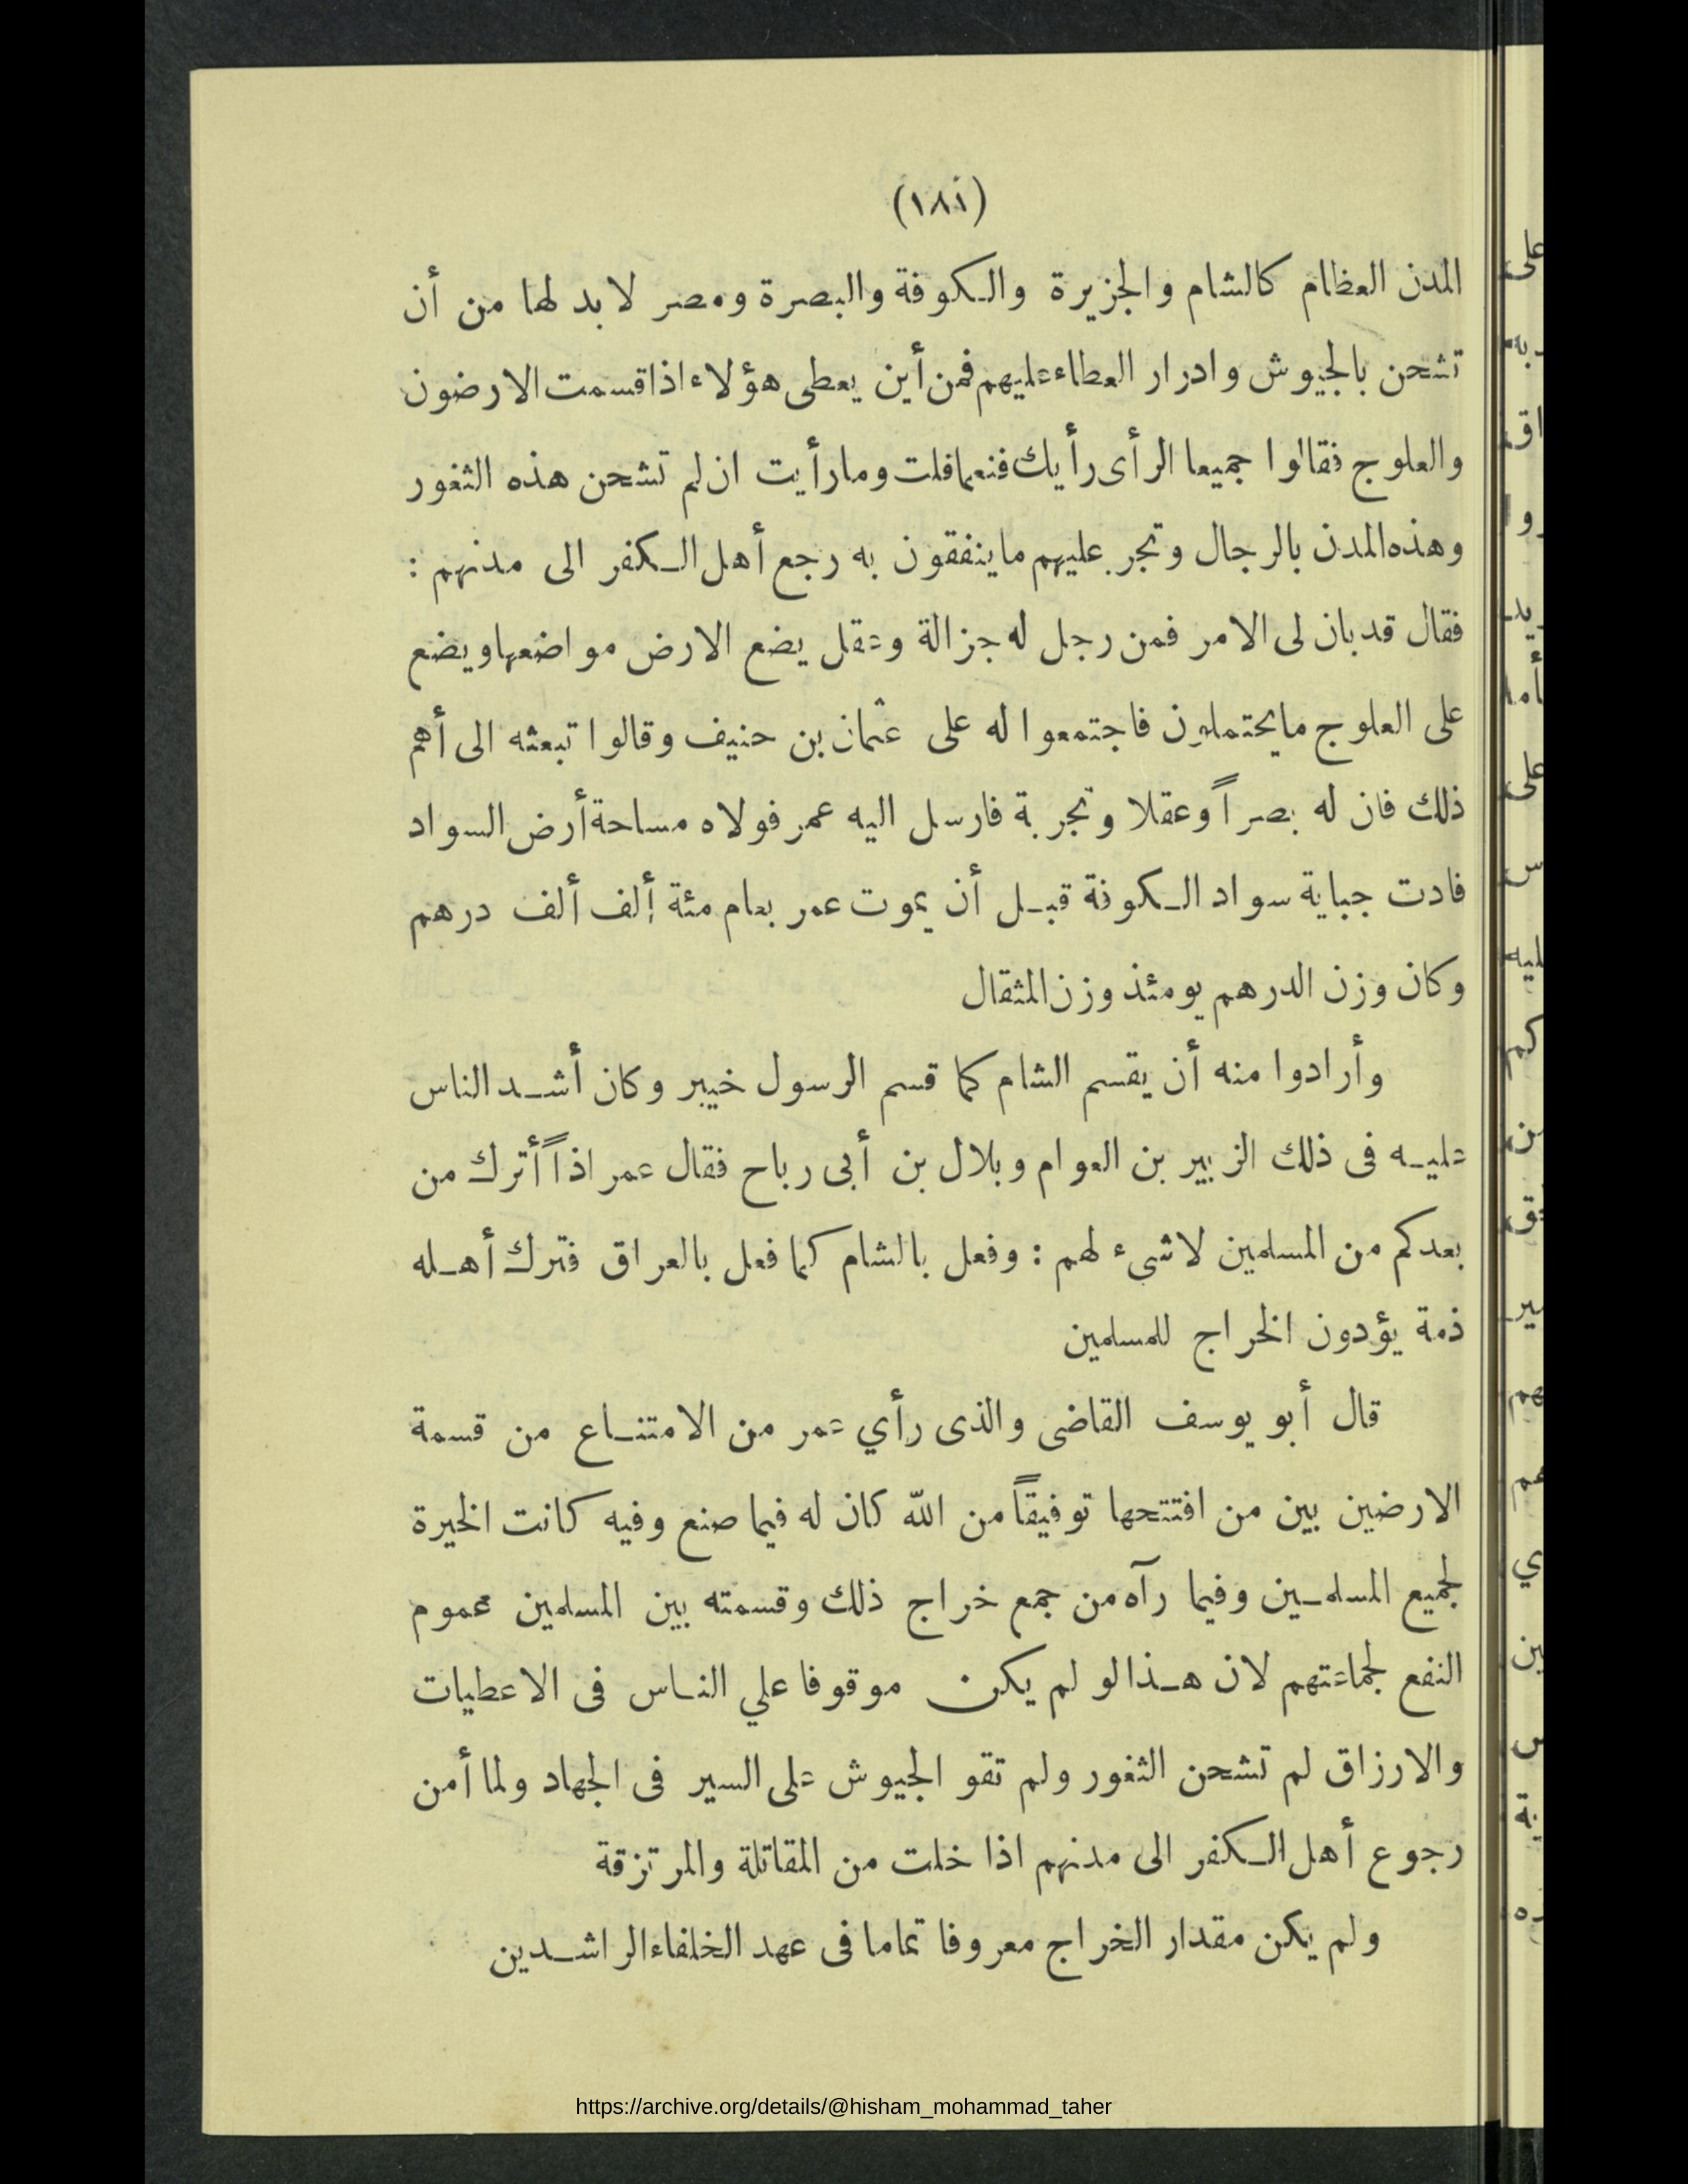 (١٨١)
المدن العظام كالشام والجزيرة والكوفة والبصرة ومصر لا بد لها من أن
تشحن بالجيوش وادرار العطاء عليهم فمن أين يعطى هؤلاء اذا قسمت الارضون
والعلوج فقالوا جميعا الرأى رأيك فنعما قلت وما رأيت ان لم تشحن هذه الثغور
وهذه المدن بالرجال وتجر عليهم ما ينفقون به رجع أهل الكفر الى مدنهم :
فقال قد بان لى الامر فمن رجل له جزالة وعقل يضع الارض مواضعها ويضع
على العلوج ما يحتملون فاجتمعوا له على عثمان بن حنيف وقالوا تبعثه الى أهم
ذلك فان له بصراً وعقلا وتجربة فارسل اليه عمر فولاه مساحة أرض السواد
فادت جباية سواد الكوفة قبل أن يموت عمر بعام مئة ألف ألف درهم
وكان وزن الدرهم يومئذ وزن المثقال
وأرادوا منه أن يقسم الشام كما قسم الرسول خيبر وكان أشد الناس
عليه فى ذلك الزبير بن العوام وبلال بن أبى رباح فقال عمر اذاً أترك من
بعدكم من المسلمين لا شىء لهم : وفعل بالشام كما فعل بالعراق فترك أهله
ذمة يؤدون الخراج للمسلمين
قال أبو يوسف القاضى والذى رأي عمر من الامتناع من قسمة
الارضين بين من افتتحها توفيقاً من الله كان له فيما صنع وفيه كانت الخيرة
لجميع المسلمين وفيما رآه من جمع خراج ذلك وقسمته بين المسلمين عموم
النفع لجماعتهم لان هذا لو لم يكن موقوفا علي الناس فى الاعطيات
والارزاق لم تشحن الثغور ولم تقو الجيوش على السير فى الجهاد ولما أمن
رجوع أهل الكفر الى مدنهم اذا خلت من المقاتلة والمرتزقة
ولم يكن مقدار الخراج معروفا تماما فى عهد الخلفاء الراشدين
https://archive.org/details/@hisham_mohammad_taher